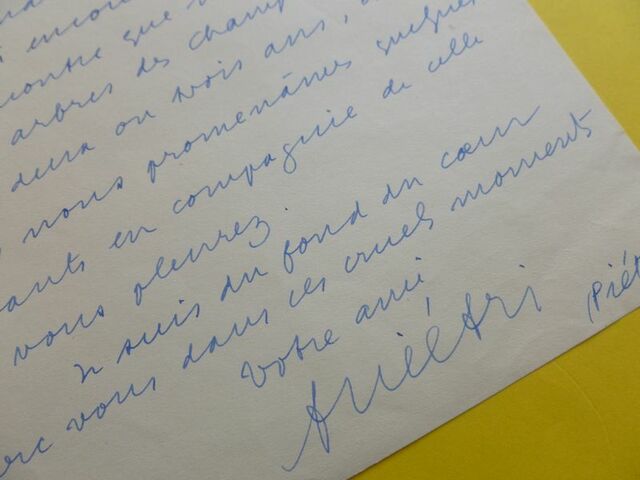 encon
contre que
arbres des champ
deux ou trois ans,
nous promenâmes quelques
ants en compagnie de celle
vous pleurez.
Je suis du fond du cœur
ec vous dans ces cruels moments
Votre ami,
(Piét